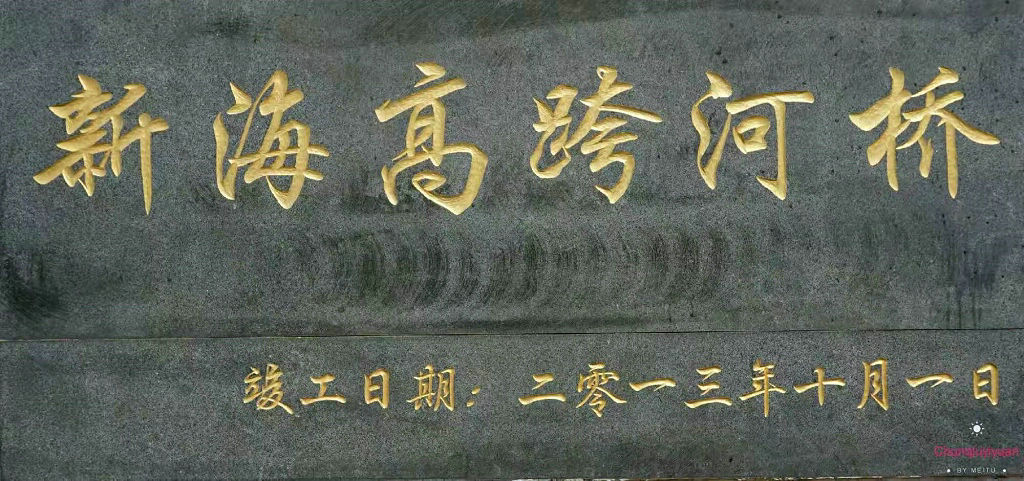 新海高跨河桥
竣工日期：二零一三年十月一日
• BY MEITU •